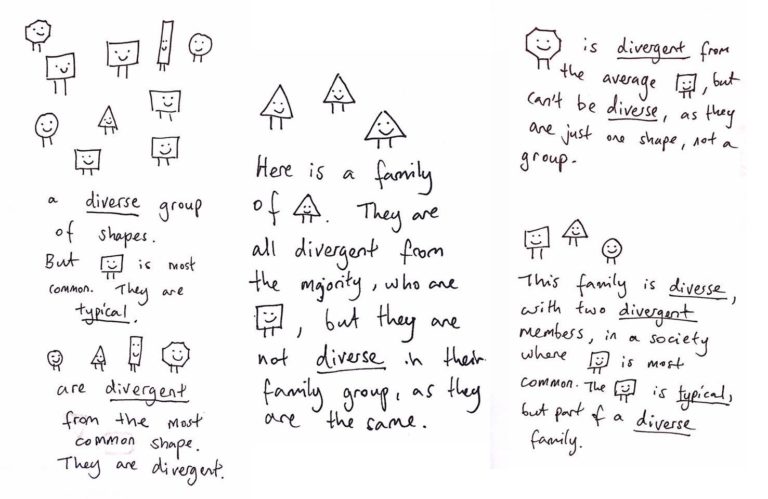 a diverse group
of shapes.
But is most
common. They are
typical.
are divergent
from the most
common shape.
They are divergent.
Here is a family
of . They are
all divergent from
the majority, who are
, but they are
not diverse in their
family group, as they
are the same.
is divergent from
the average , but
can't be diverse, as they
are just one shape, not a
group.
This family is diverse,
with two divergent
members, in a society
where is most
common. The is typical,
but part of a diverse
family.